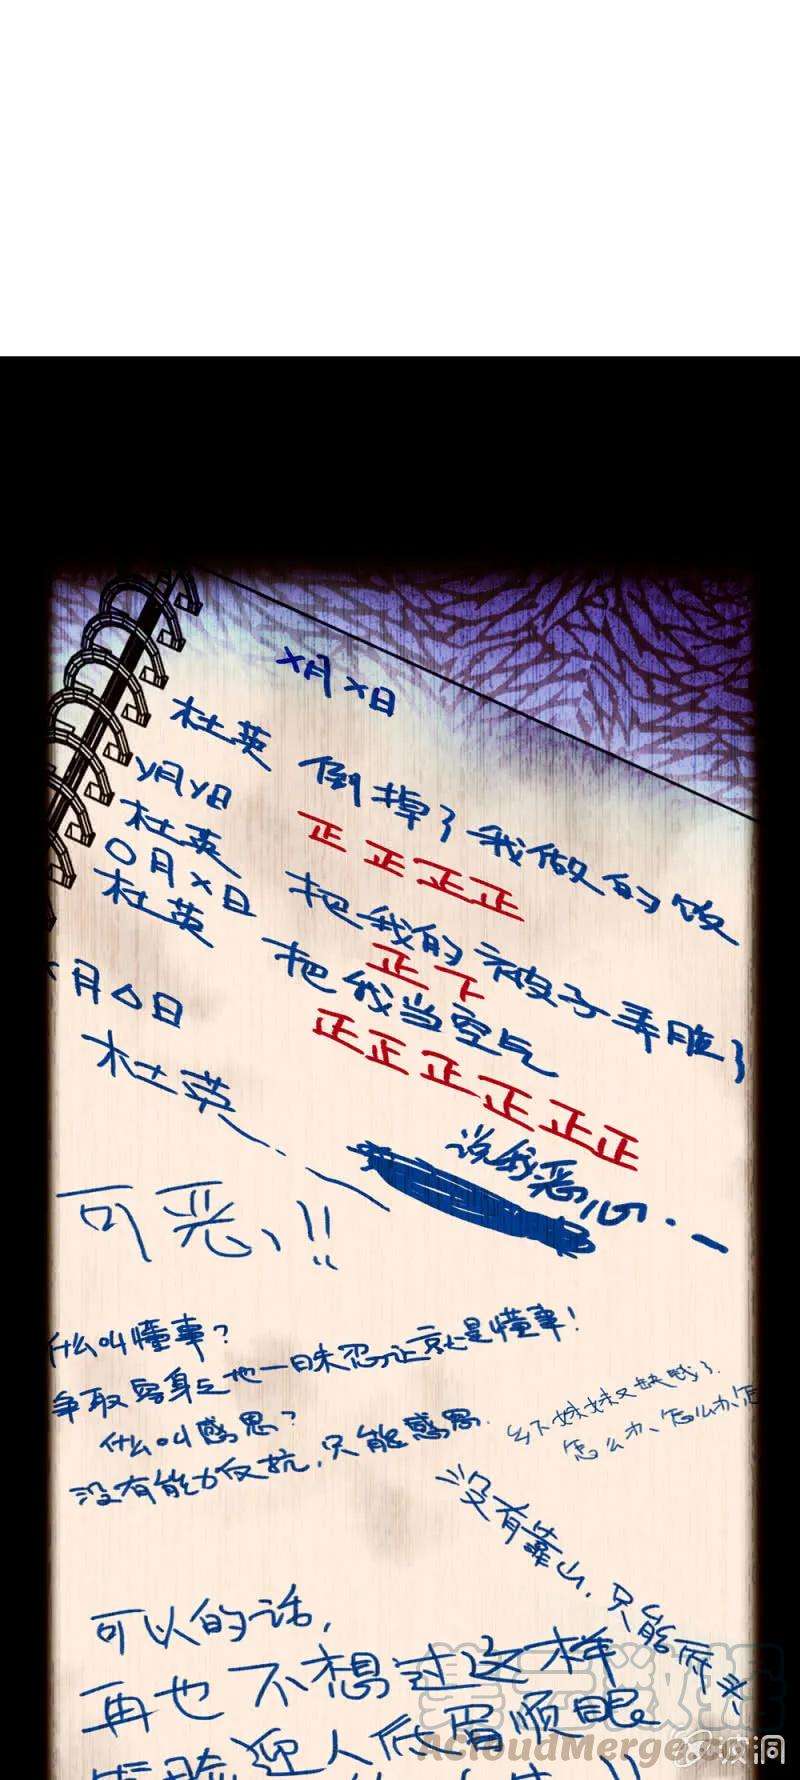 X月X日
杜英 倒掉了我做的饭
正正正正
Y月Y日
杜英 把我的被子弄脏了
正下
O月X日
杜英 把我当空气
正正正正正正
月△日
杜英
说我恶心
可恶!!
什么叫懂事?
争取
也一日未忍让就是懂事!
什么叫感恩?
没有能力反抗,只能感恩.
乡下妹妹又缺钱了.
怎么办、怎么办、怎
没有靠山,只能
可以的话,
再也不想过这样
迎人低眉顺眼
ACloudMerge.com